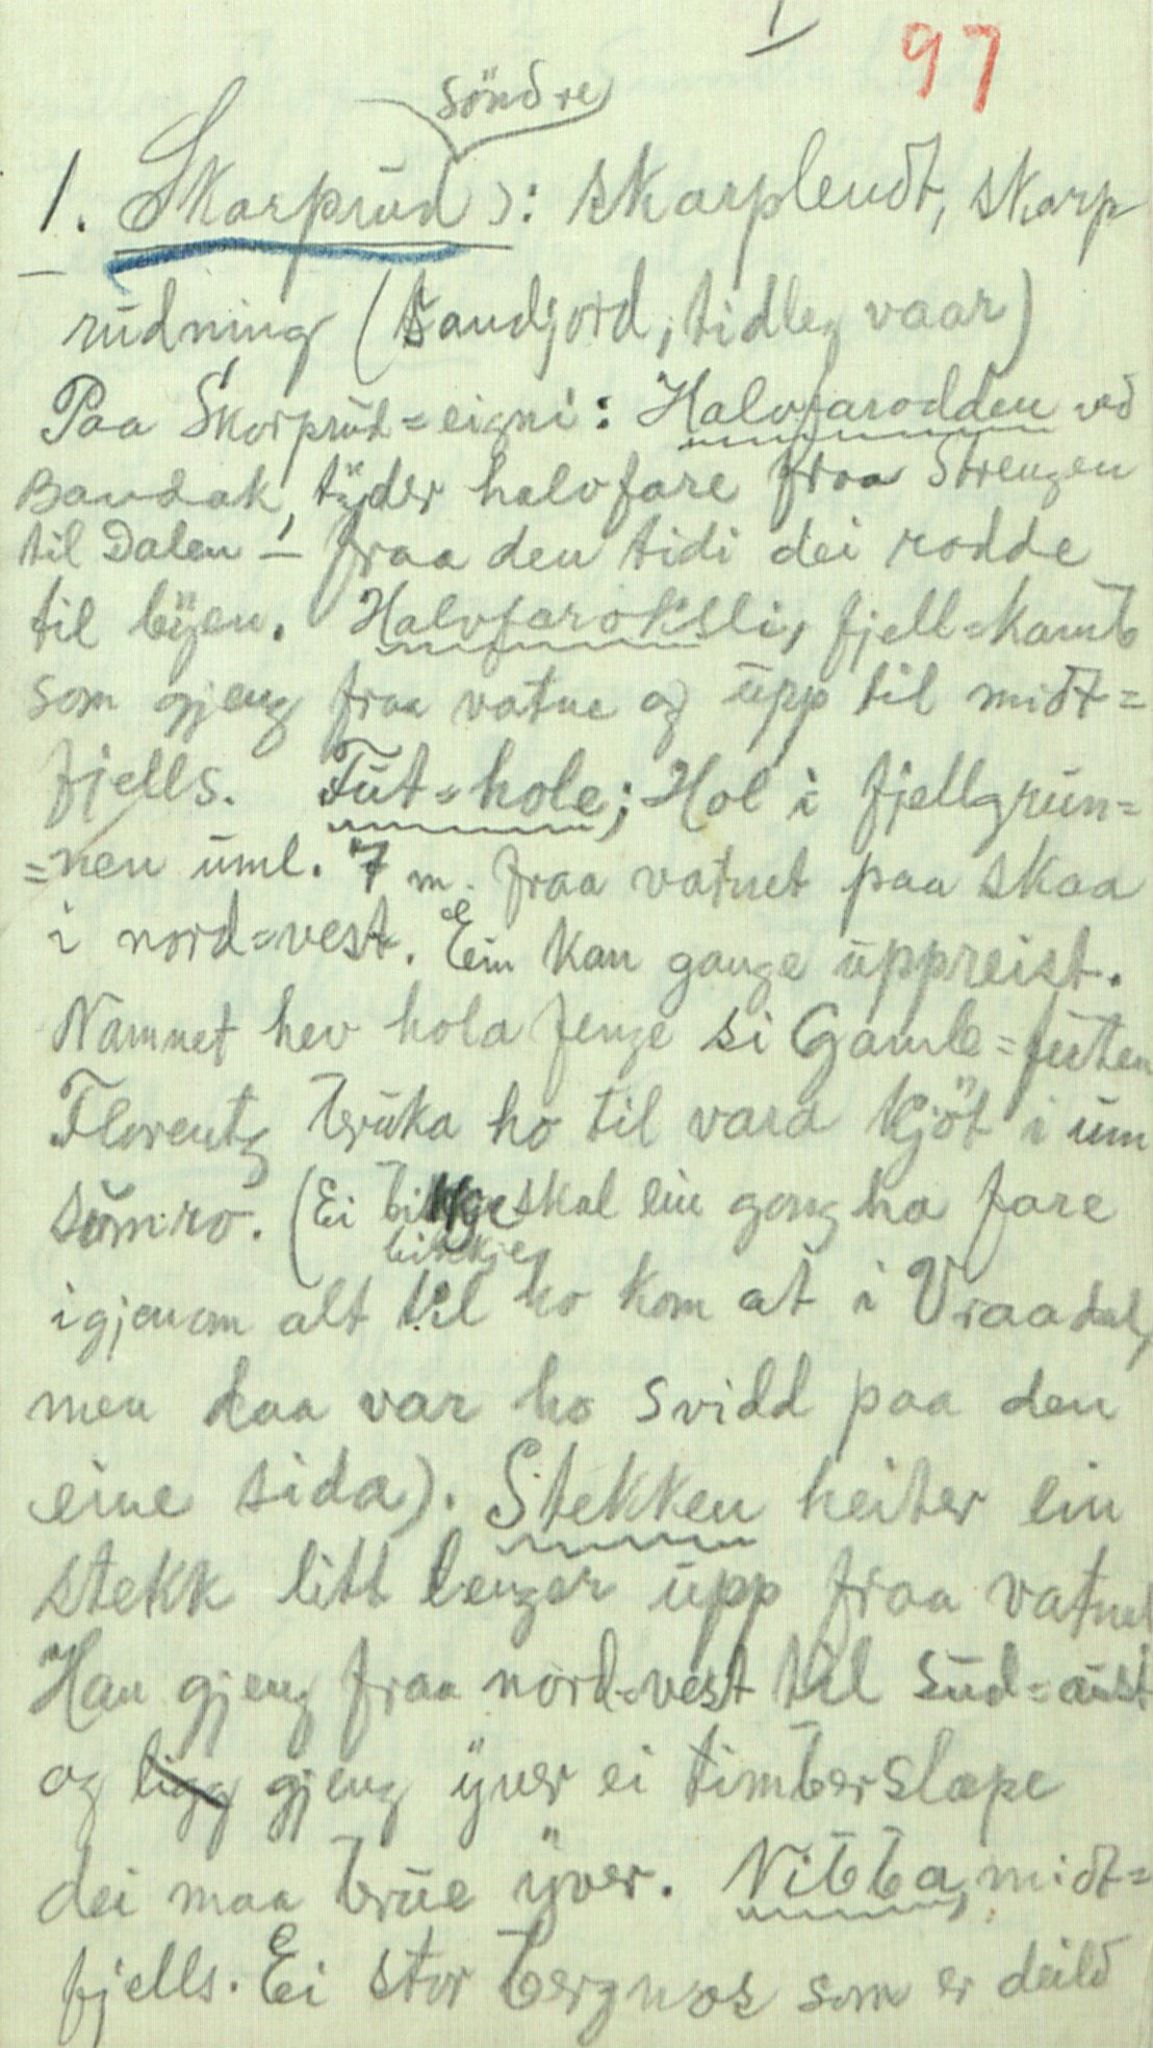 1
97
söndre
1. Skarprud ): skarplendt, skarp
rudning (sandjord, tidleg vaar)
Paa Skarprud=eigni: Halvfarodden ved
Bandak, tÿder halvfare fraa Strengen
til Dalen – fraa den tidi dei rodde
til bÿen. Halvfaroksli, fjell=kamb
som gjeng fraa vatne og upp til midt=
fjells. Fut=hole; Hol i fjellgrun=
=nen uml. 7 m. fraa vatnet paa skaa
i nord=vest. Ein kan gange uppreist.
Namnet hev hola fenge si Gamle=futen
Florentz bruka ho til vara kjöt i um
sumro. (Ei bikkje skal ein gong ha fare
bikkje
igjenom alt til ho kom at i Vraadal,
men daa var ho svidd paa den
eine sida). Stekken heiter ein
stekk litt lenger upp fraa vatnet
Han gjeng fraa nord=vest til sud=aust
og ligg gjeng ÿver ei timberslæpe
dei maa brue ÿver. Nibba, midt=
fjells. Ei stor bergnos som er deild